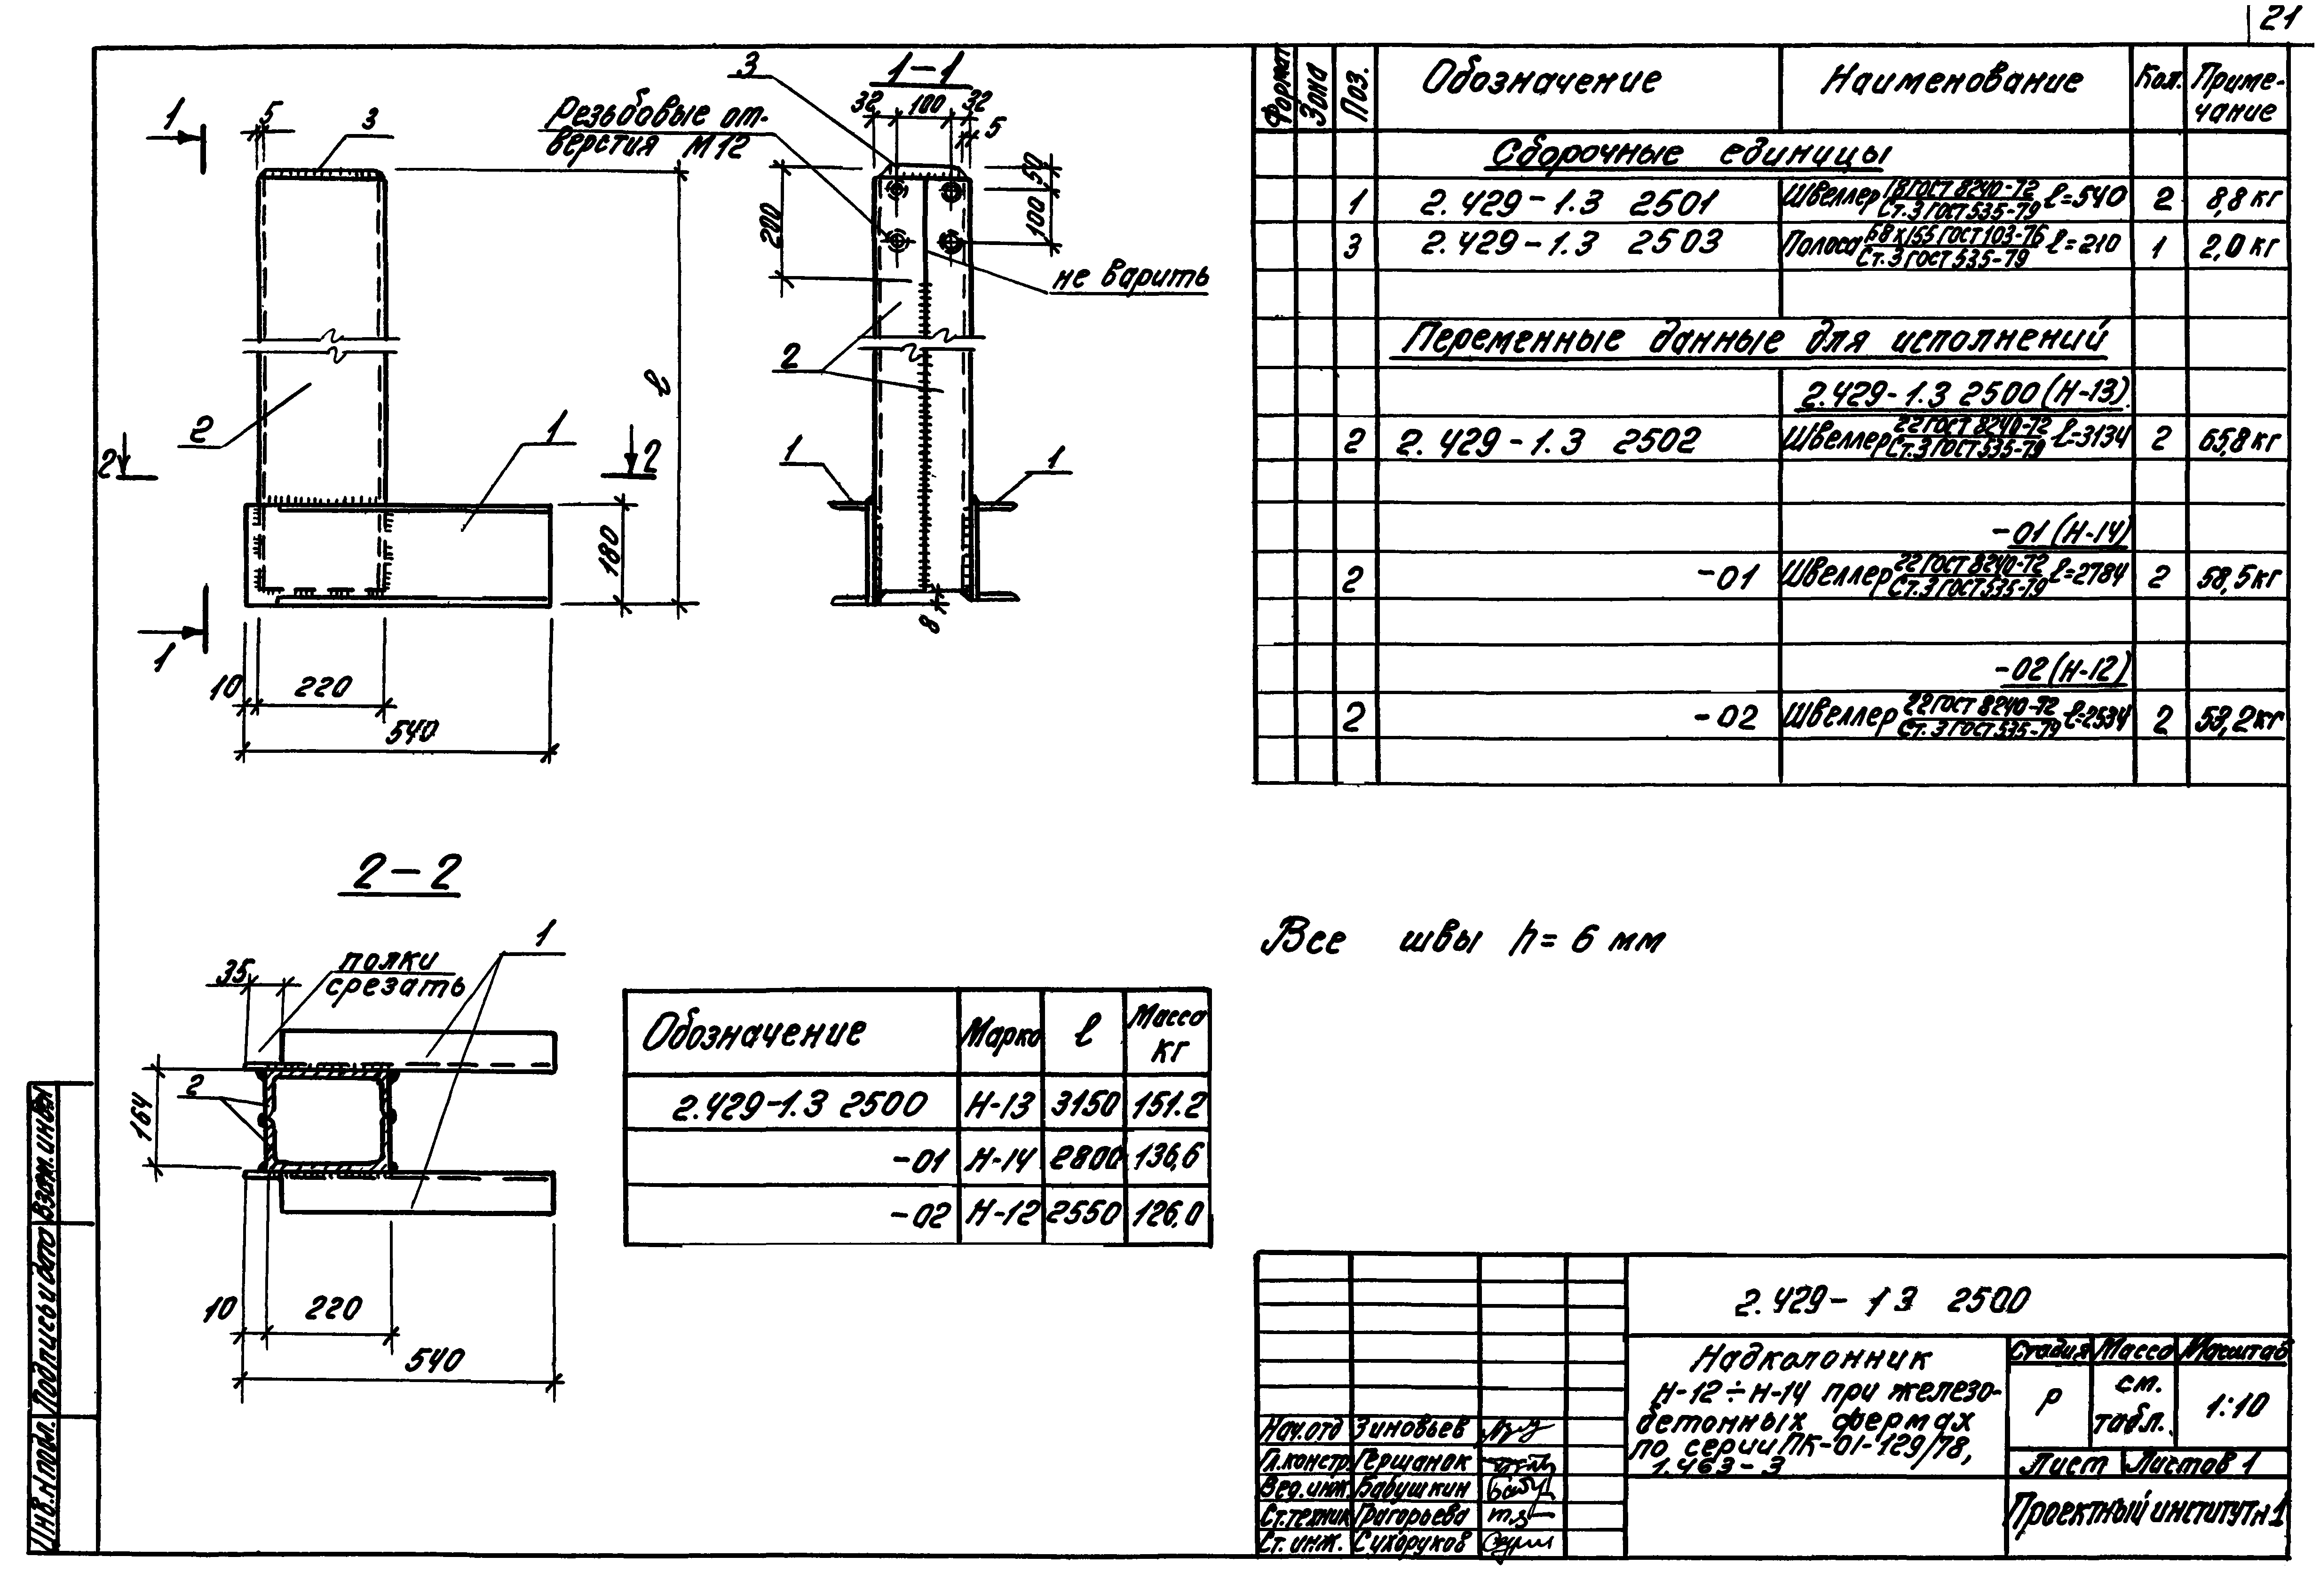 21
1
5
3
2
2
1
2
ℓ
180
1
10
220
540
3
1-1
32
100
32
5
Резьбовые от-
верстия М12
50
100
200
не варить
2
1
1
8
2-2
1
35
полки
срезать
2
164
10
220
540
Обозначение Марка ℓ Масса
кг
2.429-1.3 2500 Н-13 3150 151.2
-01 Н-14 2800 136,6
-02 Н-12 2550 126,0
Формат Зона Поз. Обозначение Наименование Кол. Приме-
чание
Сборочные единицы
1 2.429-1.3 2501 Швеллер 18 ГОСТ 8240-72 ℓ=540 2 8,8 кг
Ст.3 ГОСТ 535-79
3 2.429-1.3 2503 Полоса Б8х155 ГОСТ 103-76 ℓ=210 1 2,0 кг
Ст.3 ГОСТ 535-79
Переменные данные для исполнений
2.429-1.3 2500 (Н-13)
2 2.429-1.3 2502 Швеллер 22 ГОСТ 8240-72 ℓ=3134 2 65,8 кг
Ст.3 ГОСТ 535-79
-01 (Н-14)
2 -01 Швеллер 22 ГОСТ 8240-72 ℓ=2784 2 58,5 кг
Ст.3 ГОСТ 535-79
-02 (Н-12)
2 -02 Швеллер 22 ГОСТ 8240-72 ℓ=2534 2 53,2 кг
Ст.3 ГОСТ 535-79
Все швы h= 6 мм
2.429- 1 3 2500
Надколонник
Н-12÷Н-14 при железо-
бетонных фермах
по серии ПК-01-129/78,
1.463-3
Стадия Масса Масштаб
Р см.
табл. 1:10
Лист Листов 1
Проектный институт №1
Нач.отд Зиновьев
Гл.констр. Гершанок
Вед.инж. Бабушкин
Ст.техник Григорьева
Ст. инж. Сухоруков
Инв.№ подл. Подпись и дата Взам.инв.№